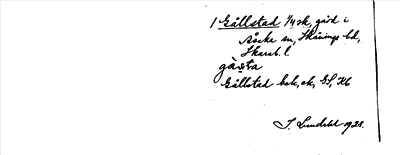 1 Gällstad 1/4 sk, gård i
Åsaka sn, Skånings hd,
Skarab. l.
gä̀sta
Gällstad bok, ek, GS, Hb
J. Lundahl 1928.